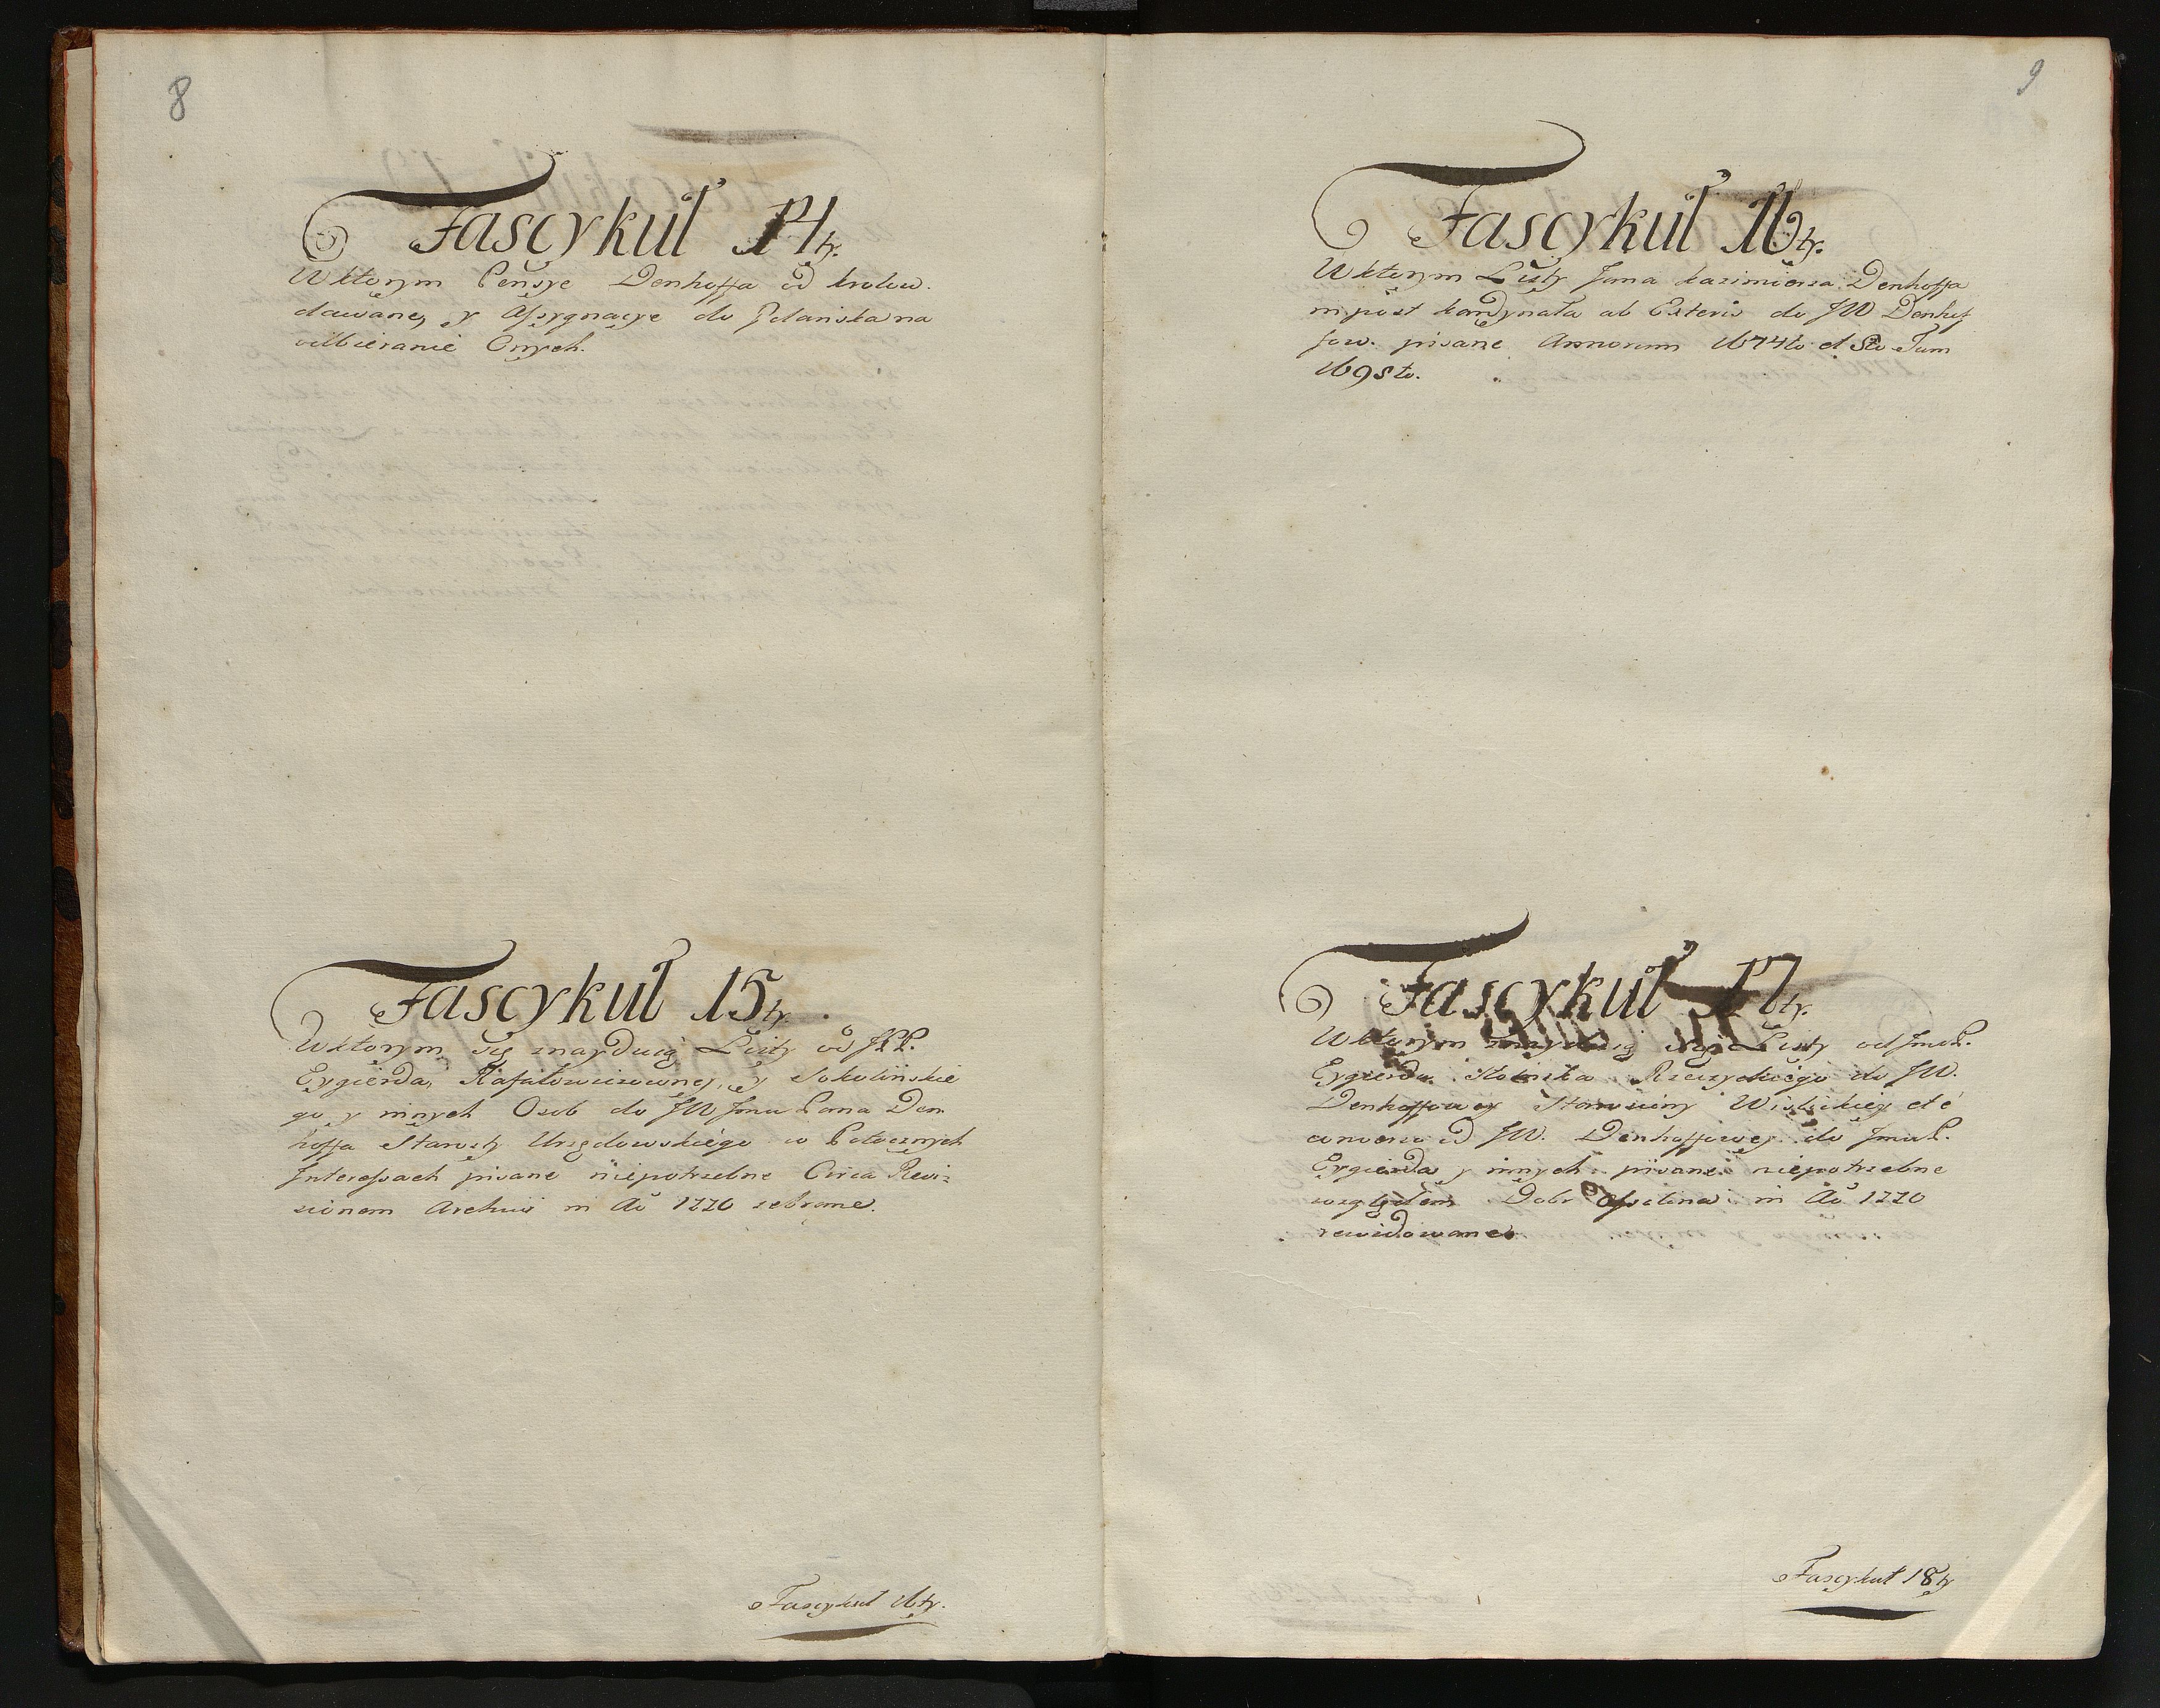 8
Fascykuł 14ty.
W ktorym Pensye Denhoffa od krolow.
dawane, y Assygnacye do Gdanska na
odbieranie Onych.
Fascykuł 15ty.
W ktorym się znayduią Listy od JPP.
Eygierda, Rafałowiczowney, y Sokolinskie
go y innych Osob do JW Jmci Pana Den
hoffa Starosty Urzędowskiego w Potocznych
Interessach pisane niepotrzebne Circa Revi=
sionem Archivi in Ao 1770 zebrane.
Fascykuł 16ty.
9
Fascykuł 16ty.
W ktorym Listy Jana kazimierza Denhoffa
in post kardynała ab Exteris do JW Denhof
fow. pisane Annorum 1674to et 8to Tum
1695to.
Fascykuł 17ty.
W ktorym znayduią się Listy od JmciP.
Eygierda Stolnika Rzeczyckiego do JW.
Denhoffowey Starosciny Wislickiey et e
converso od JW. Denhoffowey do JmciP.
Eygierda y innych pisane niepotrzebne
względem Dobr Ossolina in Ao 1770
rewidowane
Fascykuł 18ty